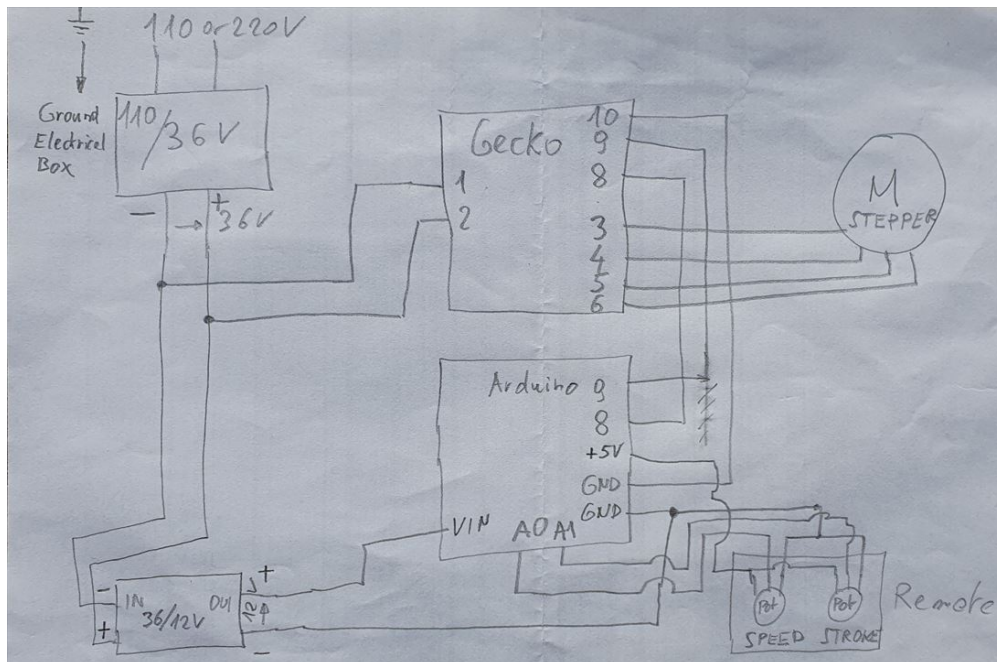 110 or 220V
Ground
Electrical
Box
110/36V
-
+
36V
Gecko
1
2
10
9
8
3
4
5
6
M
STEPPER
Arduino
9
8
+5V
GND
GND
VIN
A0 A1
-
+
IN
OUT
36/12V
+
12V
-
Pot
Pot
SPEED
STROKE
Remote